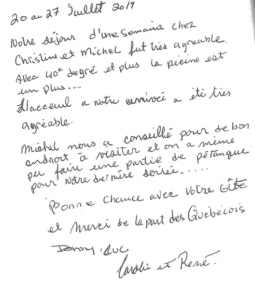 20 au 27 Juillet 2019
Notre séjour d'une semaine chez
Christine et Michel fut très agréable.
Avec 40° degré et plus la picine est
un plus...
L'accoeuil a notre arrivée a été très
agréable.
Michel nous a conseillé pour de bon
endroit à visiter et on a même
pu faire une partie de pétanque
pour notre dernière soirée.....
Bonne chance avec votre Gîte
et merci de la part des Québécois
Danny, Luc
et René.